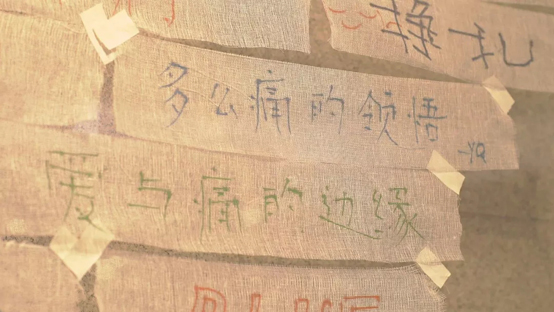 挣扎
多么痛的领悟
-YQ
爱与痛的边缘